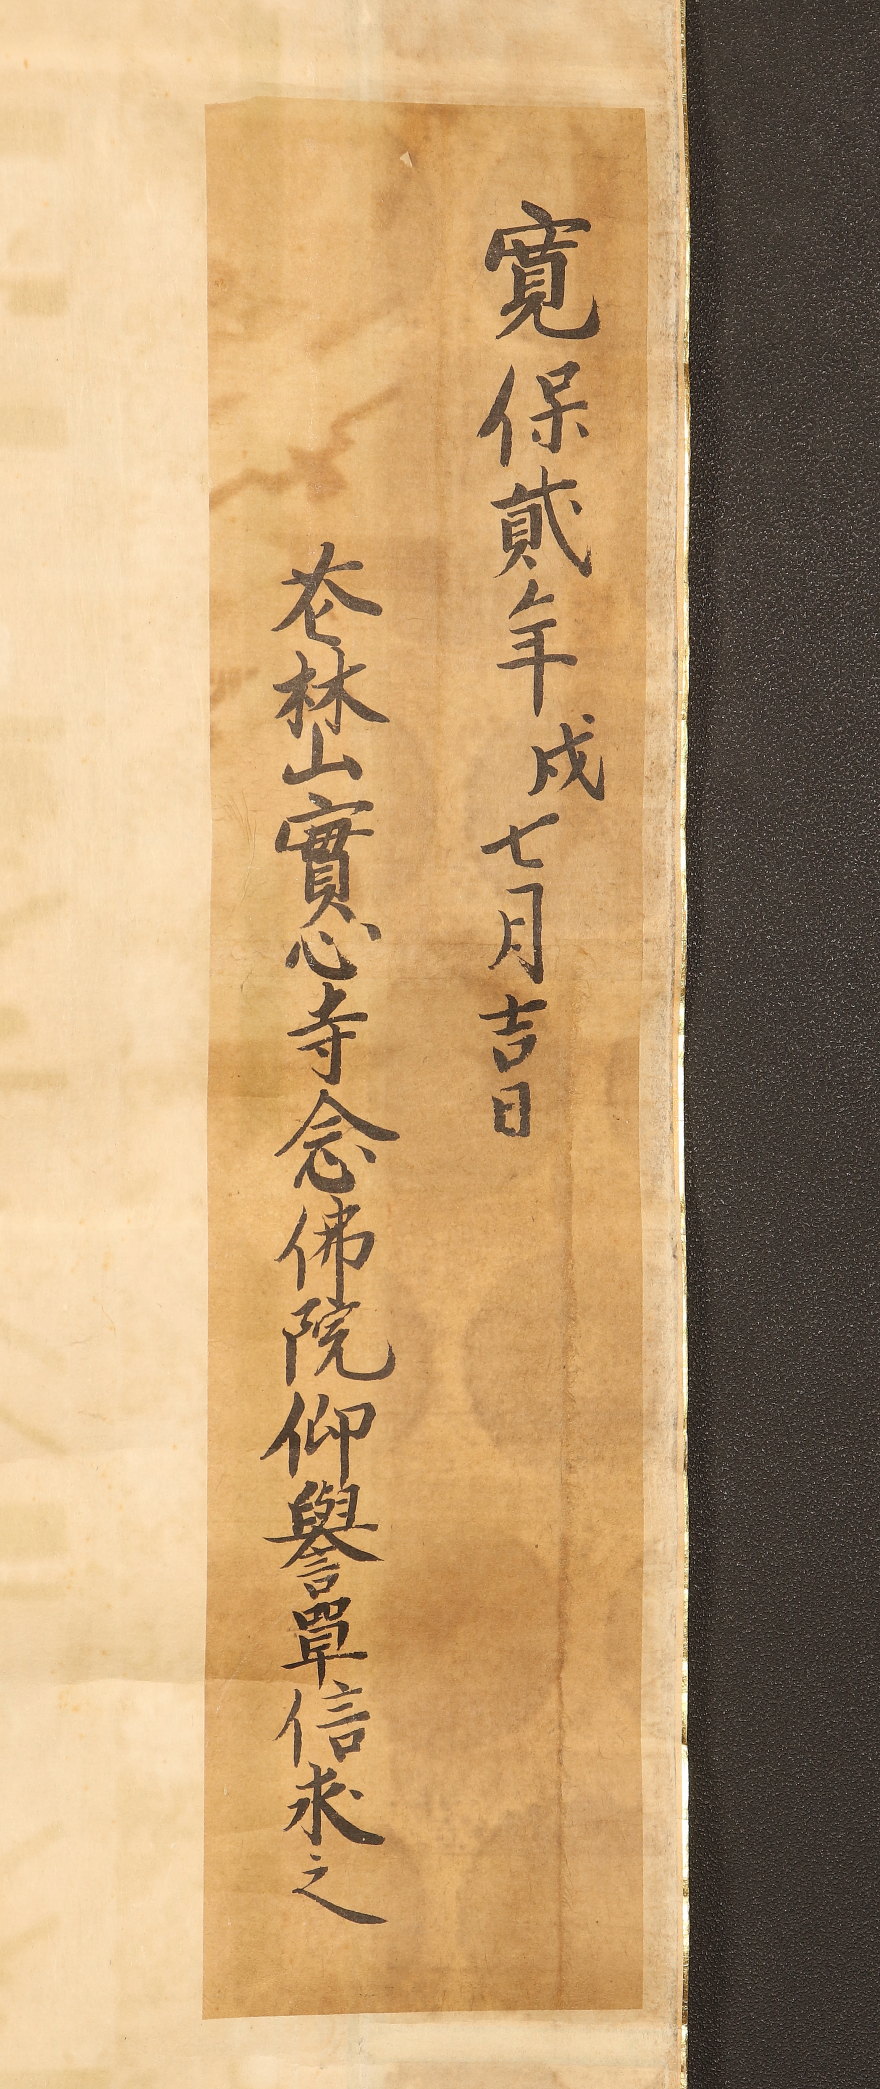 寛保貳年戌七月吉日
苍林山實心寺念佛院仰譽單信求之